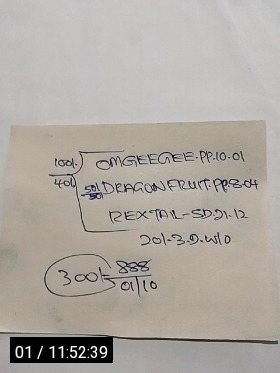 100/- OMGEEGEE.PP.10.01
40/-
50/- DRAGONFRUIT.PP.8.04
50/-
REXTAIL-SD.21.12
20/-3.D.W/O
300/- 888
01/10
01 / 11:52:39